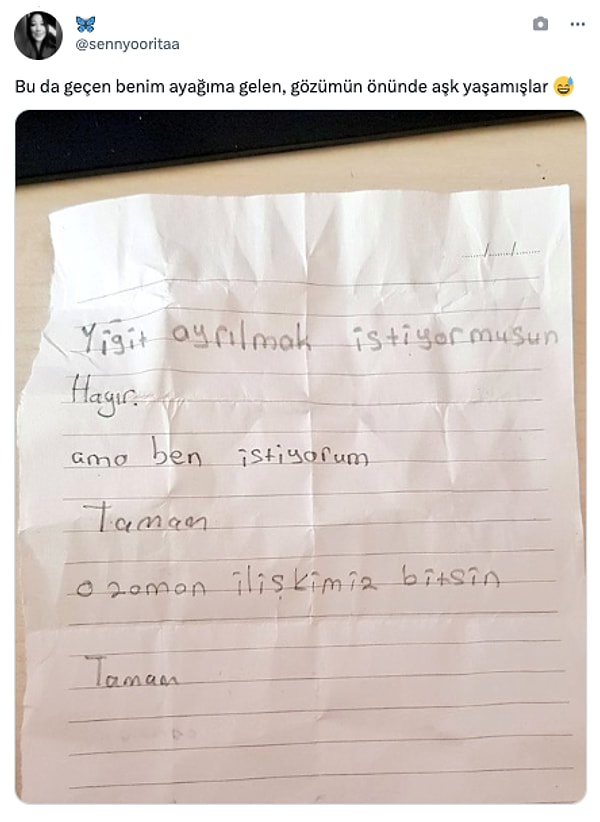 🦋
@sennyooritaa
Bu da geçen benim ayağıma gelen, gözümün önünde aşk yaşamışlar 😅
....../....../......
Yiğit ayrılmak istiyormusun
Hayır.
ama ben istiyorum
Taman
o zaman ilişkimiz bitsin
Taman